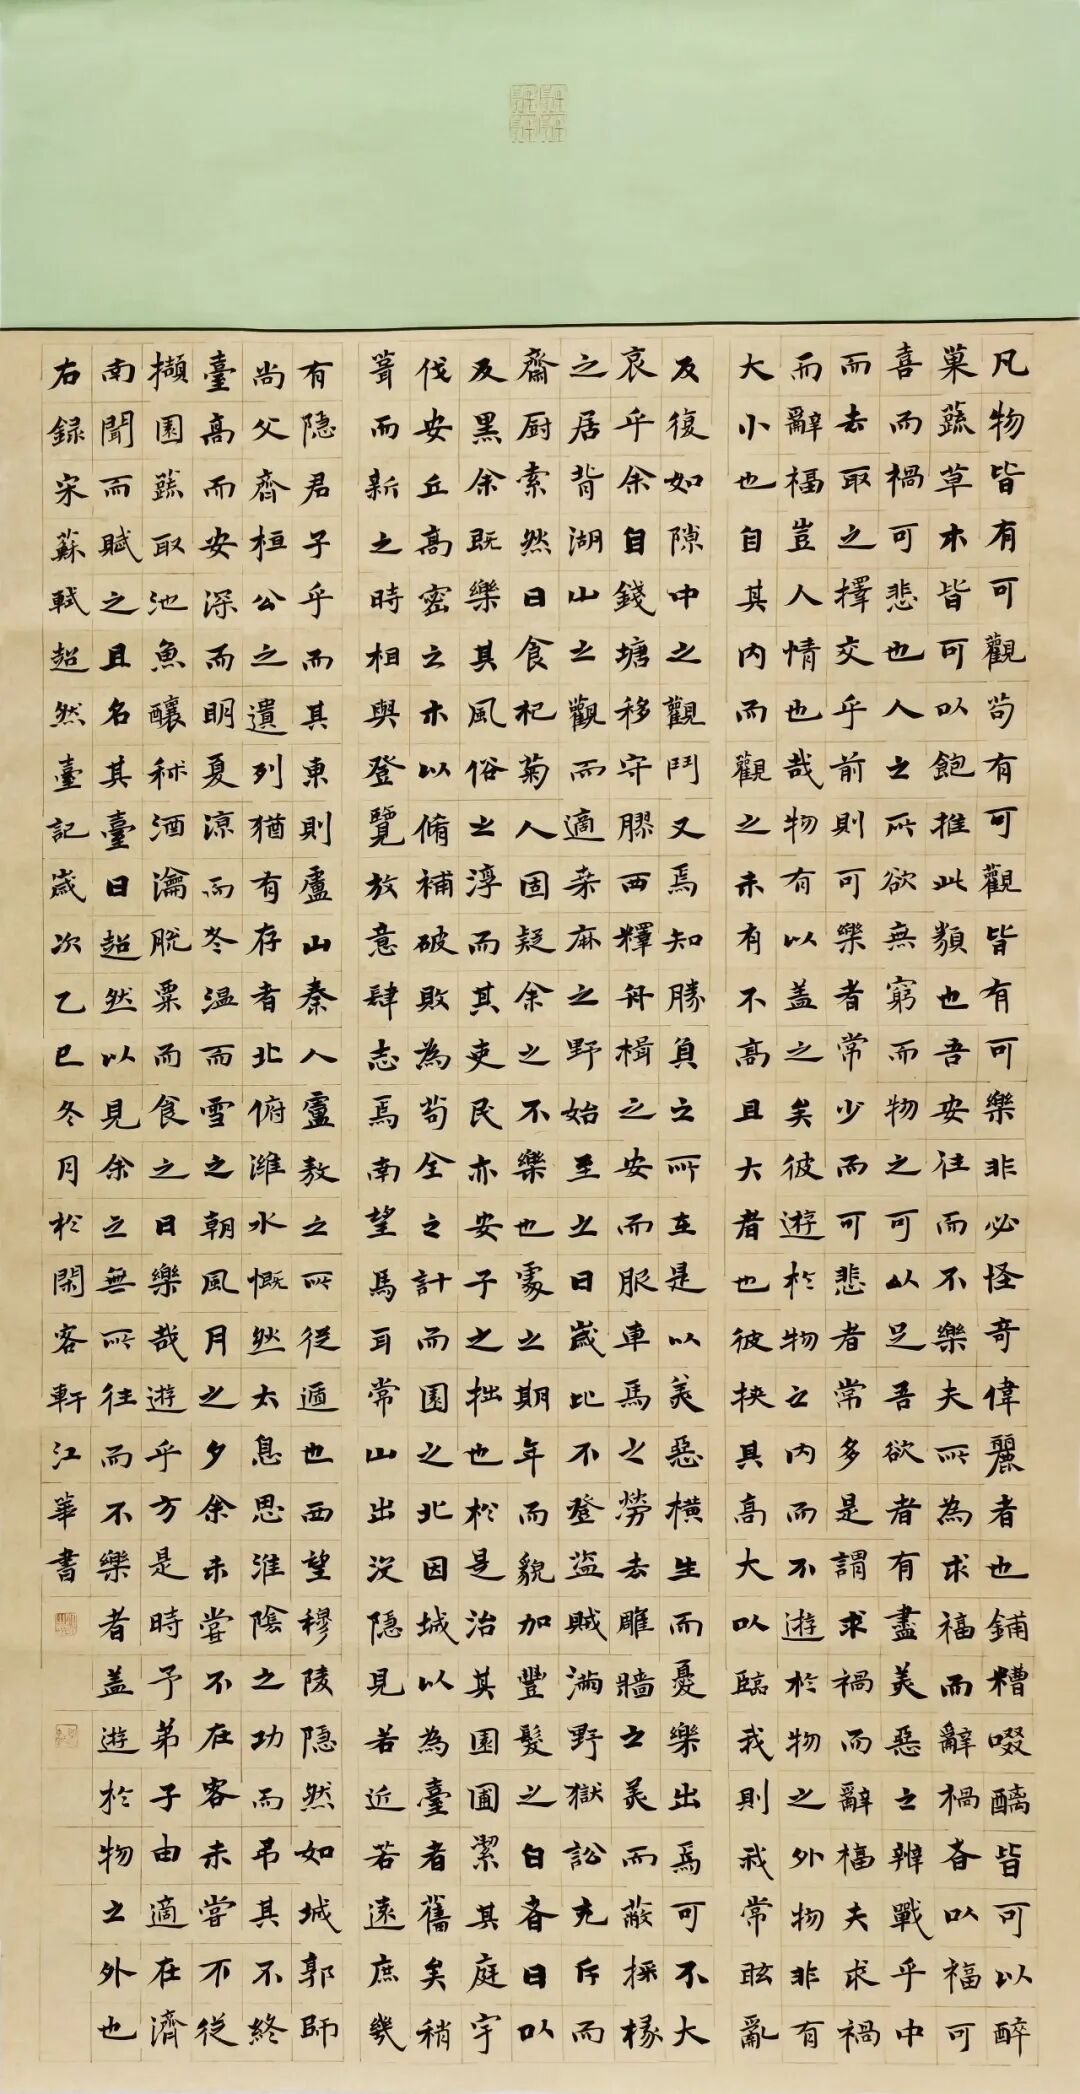 凡物皆有可觀苟有可觀皆有可樂非必怪奇偉麗者也鋪糟啜醨皆可以醉
菓蔬草木皆可以飽推此類也吾安往而不樂夫所為求福而辭禍者以福可
喜而禍可悲也人之所欲無窮而物之可以足吾欲者有盡美惡之辨戰乎中
而去取之擇交乎前則可樂者常少而可悲者常多是謂求禍而辭福夫求禍
而辭福豈人情也哉物有以盖之矣彼遊於物之内而不遊於物之外物非有
大小也自其内而觀之未有不高且大者也彼挾其高大以臨我則我常眩亂
反復如隙中之觀鬥又焉知勝負之所在是以美惡橫生而憂樂出焉可不大
哀乎余自錢塘移守膠西釋舟楫之安而服車馬之勞去雕牆之美而蔽採椽
之居背湖山之觀而適桒麻之野始至之日歲比不登盜賊滿野獄訟充斥而
齋厨索然日食杞菊人固疑余之不樂也處之期年而貌加豐髮之白者日以
反黑余既樂其風俗之淳而其吏民亦安予之拙也於是治其園圃潔其庭宇
伐安丘高密之木以脩補破敗為苟全之計而園之北因城以為臺者舊矣稍
葺而新之時相與登覽放意肆志焉南望馬耳常山出沒隱見若近若遠庶幾
有隱君子乎而其東則盧山秦人盧敖之所從遁也西望穆陵隱然如城郭師
尚父齊桓公之遺列猶有存者北俯濰水慨然太息思淮陰之功而弔其不終
臺高而安深而明夏涼而冬温而雪之朝風月之夕余未嘗不在客未嘗不從
擷園蔬取池魚釀秫酒瀹脫粟而食之曰樂哉遊乎方是時予弟子由適在濟
南聞而賦之且名其臺曰超然以見余之無所往而不樂者盖遊於物之外也
右録宋蘇軾超然臺記歲次乙巳冬月於閑客軒江華書